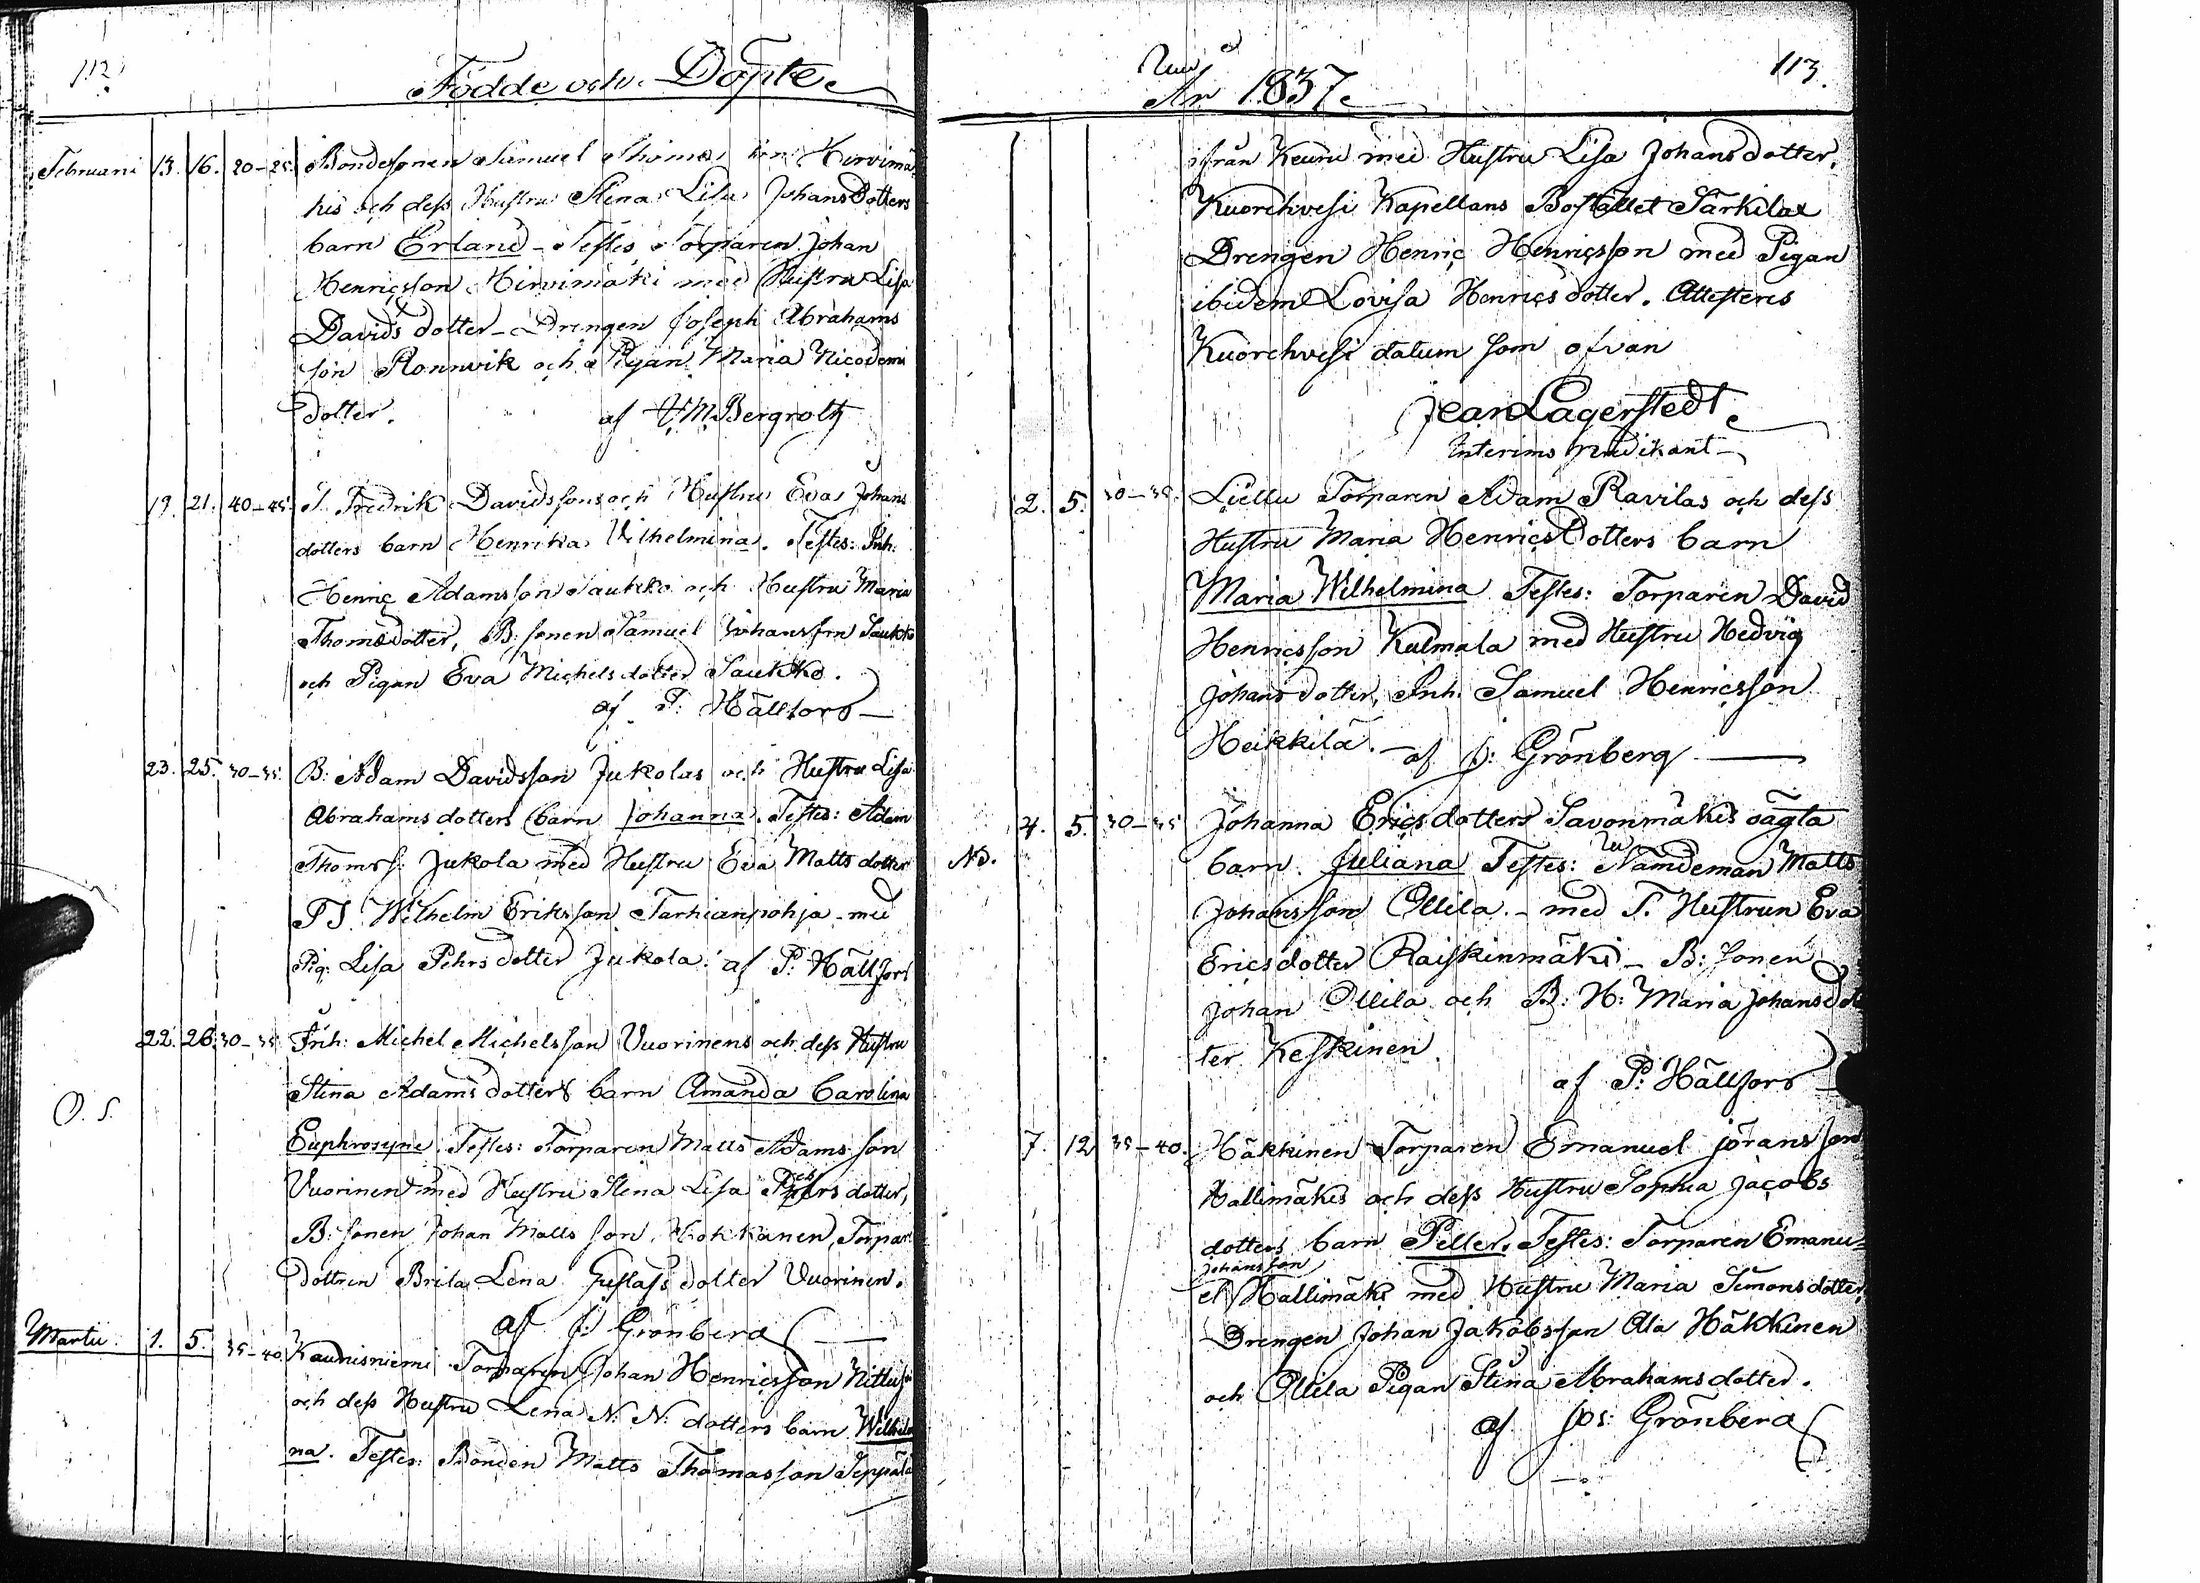 112
Födde och Döpte
Februarii 13. 16. 20-25. Bondesonen Samuel Thomas son Hirvimä
kis och dess Hustru Stina Lisa Johansdotters
barn Erland - Testes Torparen Johan
Henricsson Hirvimäki med Hustru Lisa
Davidsdotter - Drengen Joseph Abrahams
son Ronnvik och Pigan Maria Nicodemi
dotter. af Bergroth
19. 21. 40-45. Fredrik Davidssons och Hustru Eva Johans
dotters barn Henrika Vilhelmina. Testes: Inh:
Henric Adamsson Saukko och Hustru Maria
Thomsdotter, B: sonen Samuel Johansson Saukko
och Pigan Eva Michelsdotter Saukko.
af P: Hällfors
23. 25. 30-35. B: Adam Davidsson Jukolas och Hustru Lisa
Abrahamsdotters barn Johanna. Testes: Adam
Thomss: Jukola med Hustru Eva Mattsdotter
T S Wilhelm Eriksson Tarhianpohja - med
Pig: Lisa Pehrsdotter Jukola. af P: Hällfors
22. 26. 30-35. Inh: Michel Michelsson Vuorinens och dess Hustru
O. S. Stina Adamsdotters barn Amanda Carolina
Euphrosyne. Testes: Torparen Matts Adamsson
Vuorinen med Hustru Stina Lisa dotter,
B: sonen Johan Matts son, Hokkanen, Torpar
dottren Brita Lena Gustafsdotter Vuorinen.
af J: Grönberg
Martii. 1. 5. 35-40. Kaunisniemi Torparen Johan Henricsson
och dess Hustru Lena N: N: dotters barn Wilhelmi
na. Testes: Bonden Matts Thomasson Seppälä
År 1837. 113.
ifrån Keuru med Hustru Lisa Johansdotter,
Kuorehvesi Kapellans Bostället Särkilax
Drengen Henric Henricsson med Pigan
ibidem Lovisa Henricsdotter. Attesteres
Kuorehvesi datum som ofvan
Jean Lagerstedt
Interims Predikant
2. 5. 30-35. Liellu Torparen Adam Ravilas och dess
Hustru Maria Henricsdotters barn
Maria Wilhelmina Testes: Torparen David
Henricsson Kulmala med Hustru Hedvig
Johansdotter, Inh. Samuel Henricsson
Heikkilä. - af J: Grönberg
4. 5. 30-35 Johanna Ericsdotters Savonmäkis oägta
No. barn. Juliana Testes: Nämdeman Matts
Johansson Ollila. - med T. Hustrun Eva
Ericsdotter Raiskinmäki - B: sonen
Johan Ollila och B: H: Maria Johansdot
ter Keskinen.
af P: Hällfors
7. 12 35-40. Häkkinen Torparen Emanuel Jöransson
Hallimäkis och dess Hustru Sophia Jacobs
dotters barn Petter. Testes: Torparen Emanu=
Johansson
el Hallimäki med Hustru Maria Simonsdotter,
Drengen Johan Jakobsson Ala Häkkinen
och Ollila Pigan Stina Abrahamsdotter.
af Jos: Grönberg